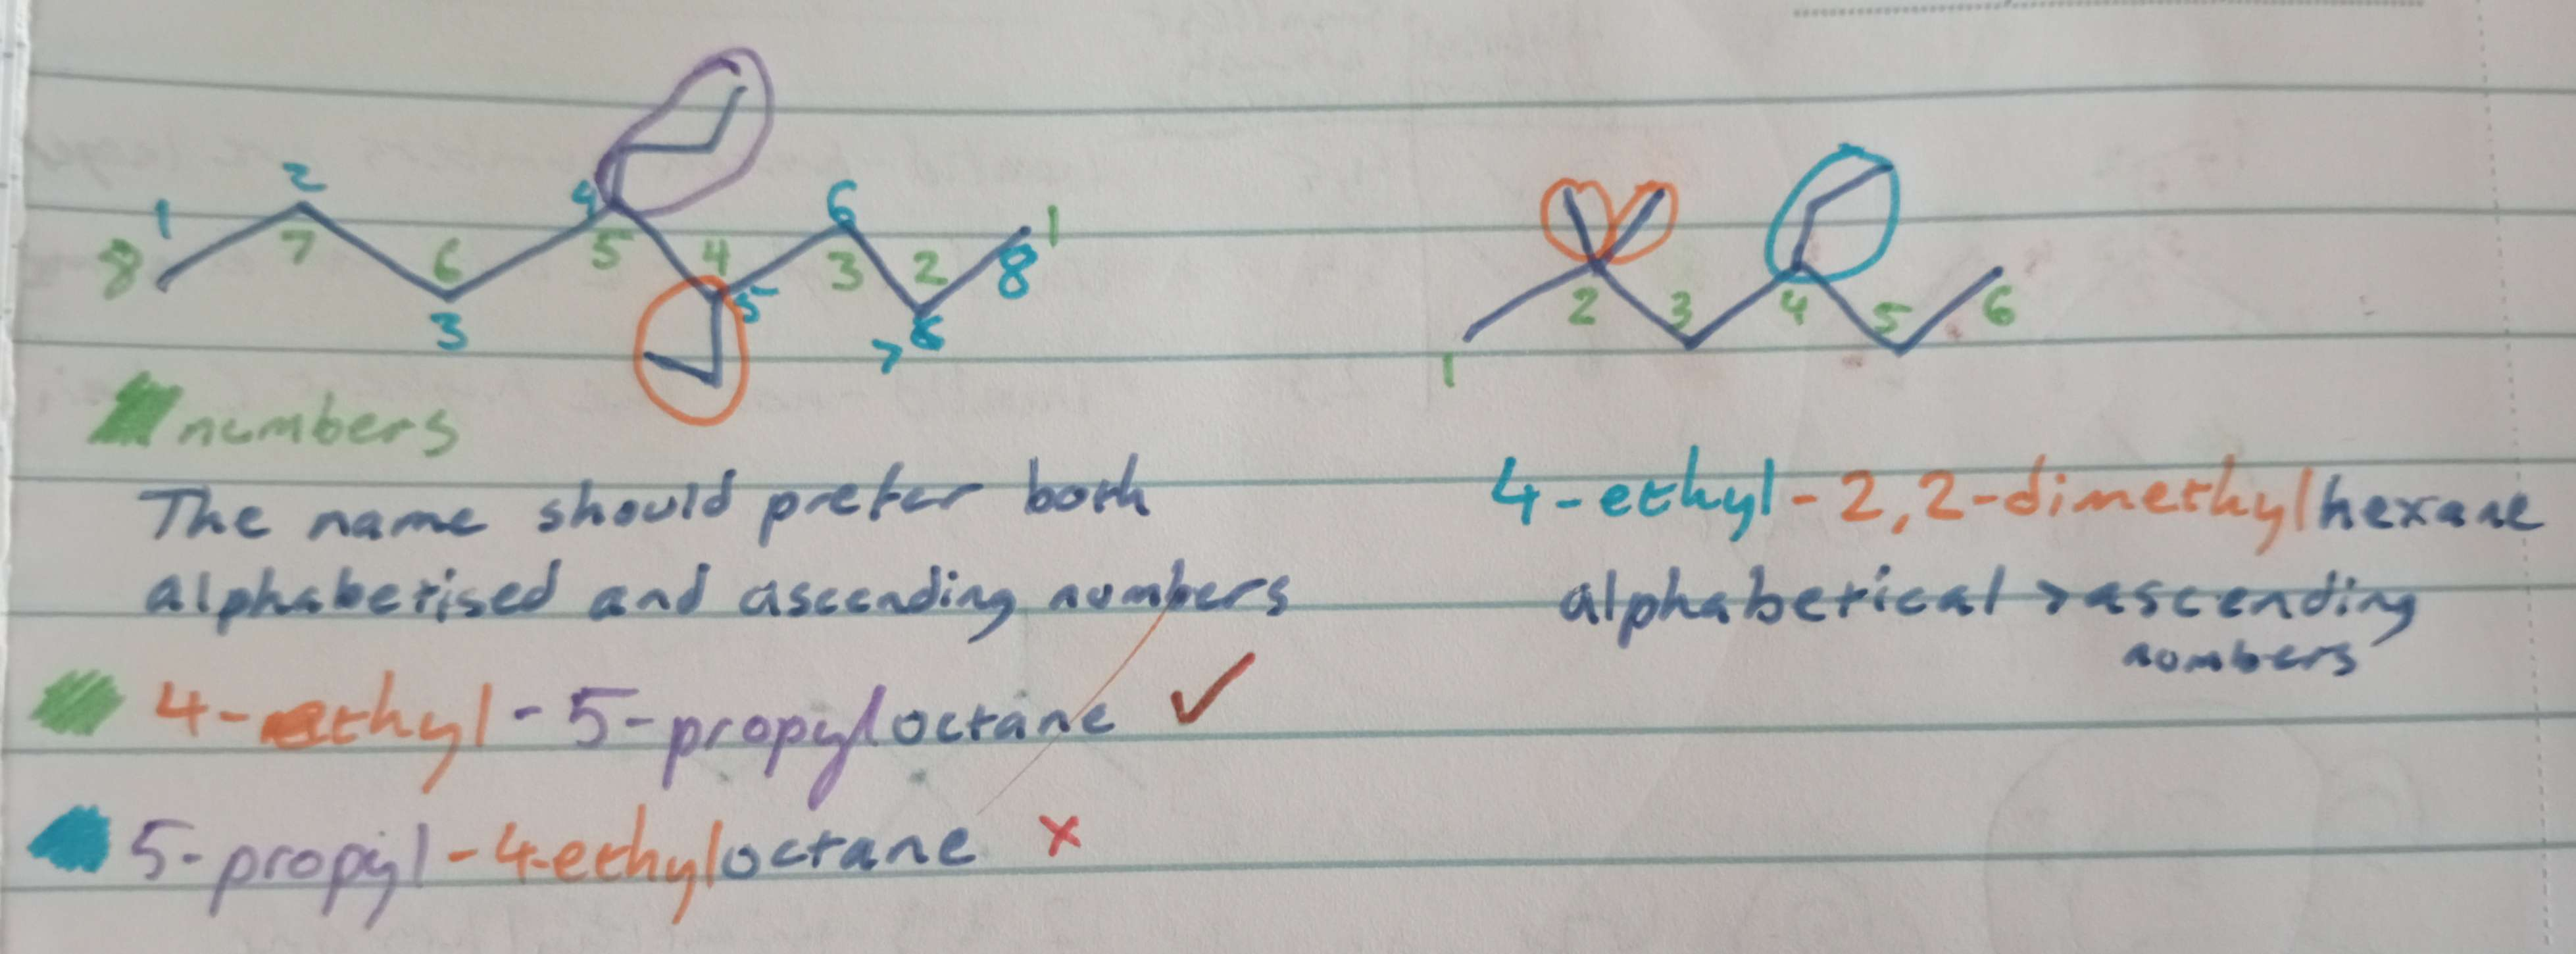 1 2 3 4 5 6 7 8
8 7 6 5 4 3 2 1
numbers
The name should prefer both
alphabetised and ascending numbers
4-ethyl-5-propyloctane ✓
5-propyl-4-ethyloctane ×
1 2 3 4 5 6
4-ethyl-2,2-dimethylhexane
alphabetical > ascending
numbers